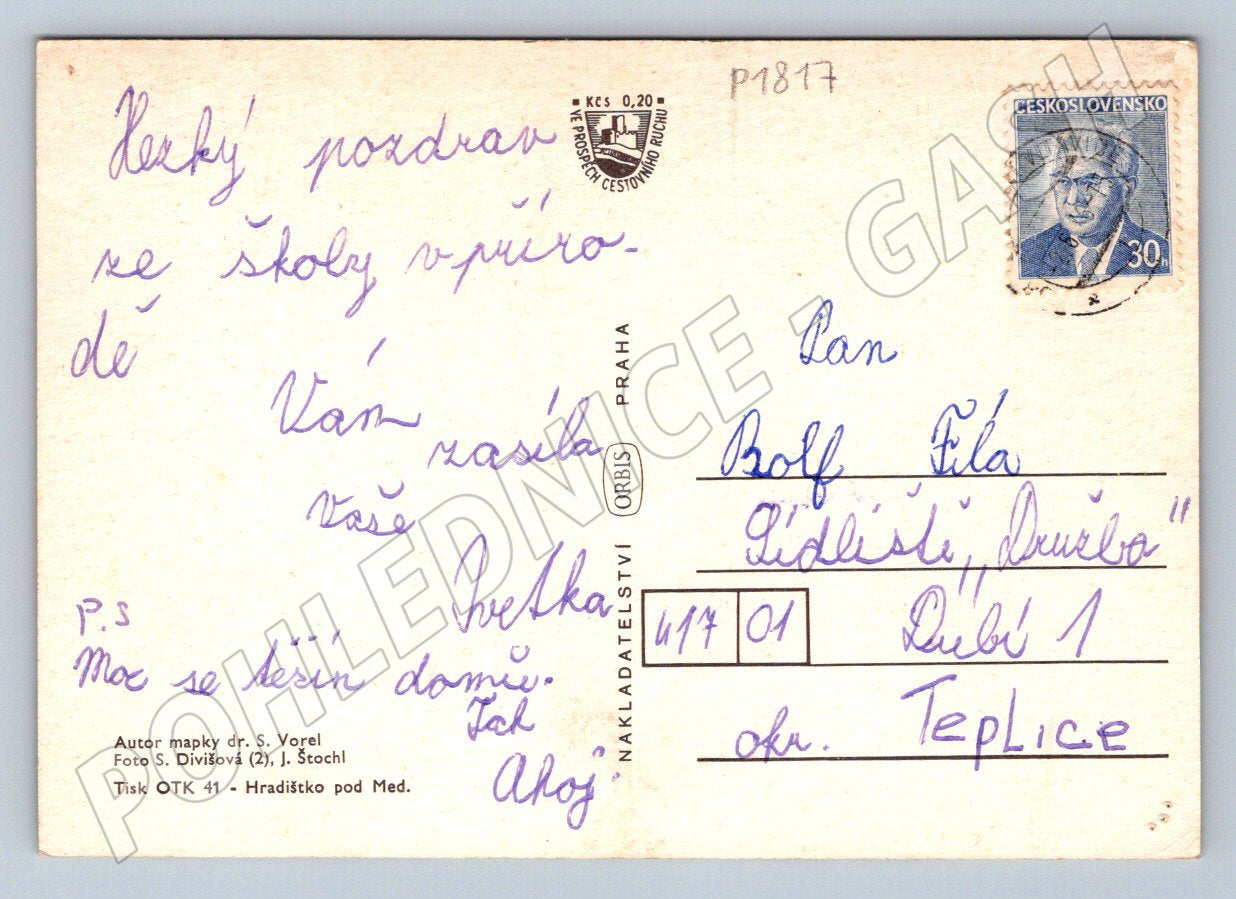 P1817
Hezký pozdrav
ze školy v příro-
dě
Vám
zasíla
Vaše
Svetka
P.S
Moc se těšín domů.
Tak
Ahoj.
Autor mapky dr. S. Vorel
Foto S. Divišová (2), J. Štochl
Tisk OTK 41 - Hradištko pod Med.
Kčs 0,20
VE PROSPĚCH CESTOVNÍHO RUCHU
NAKLADATELSTVÍ ORBIS PRAHA
ČESKOSLOVENSKO
30h
Pan
Rolf Fíla
Sídliště „Družba"
417 01 Dubí 1
okr. TepLice
POHLEDNICE - GASH